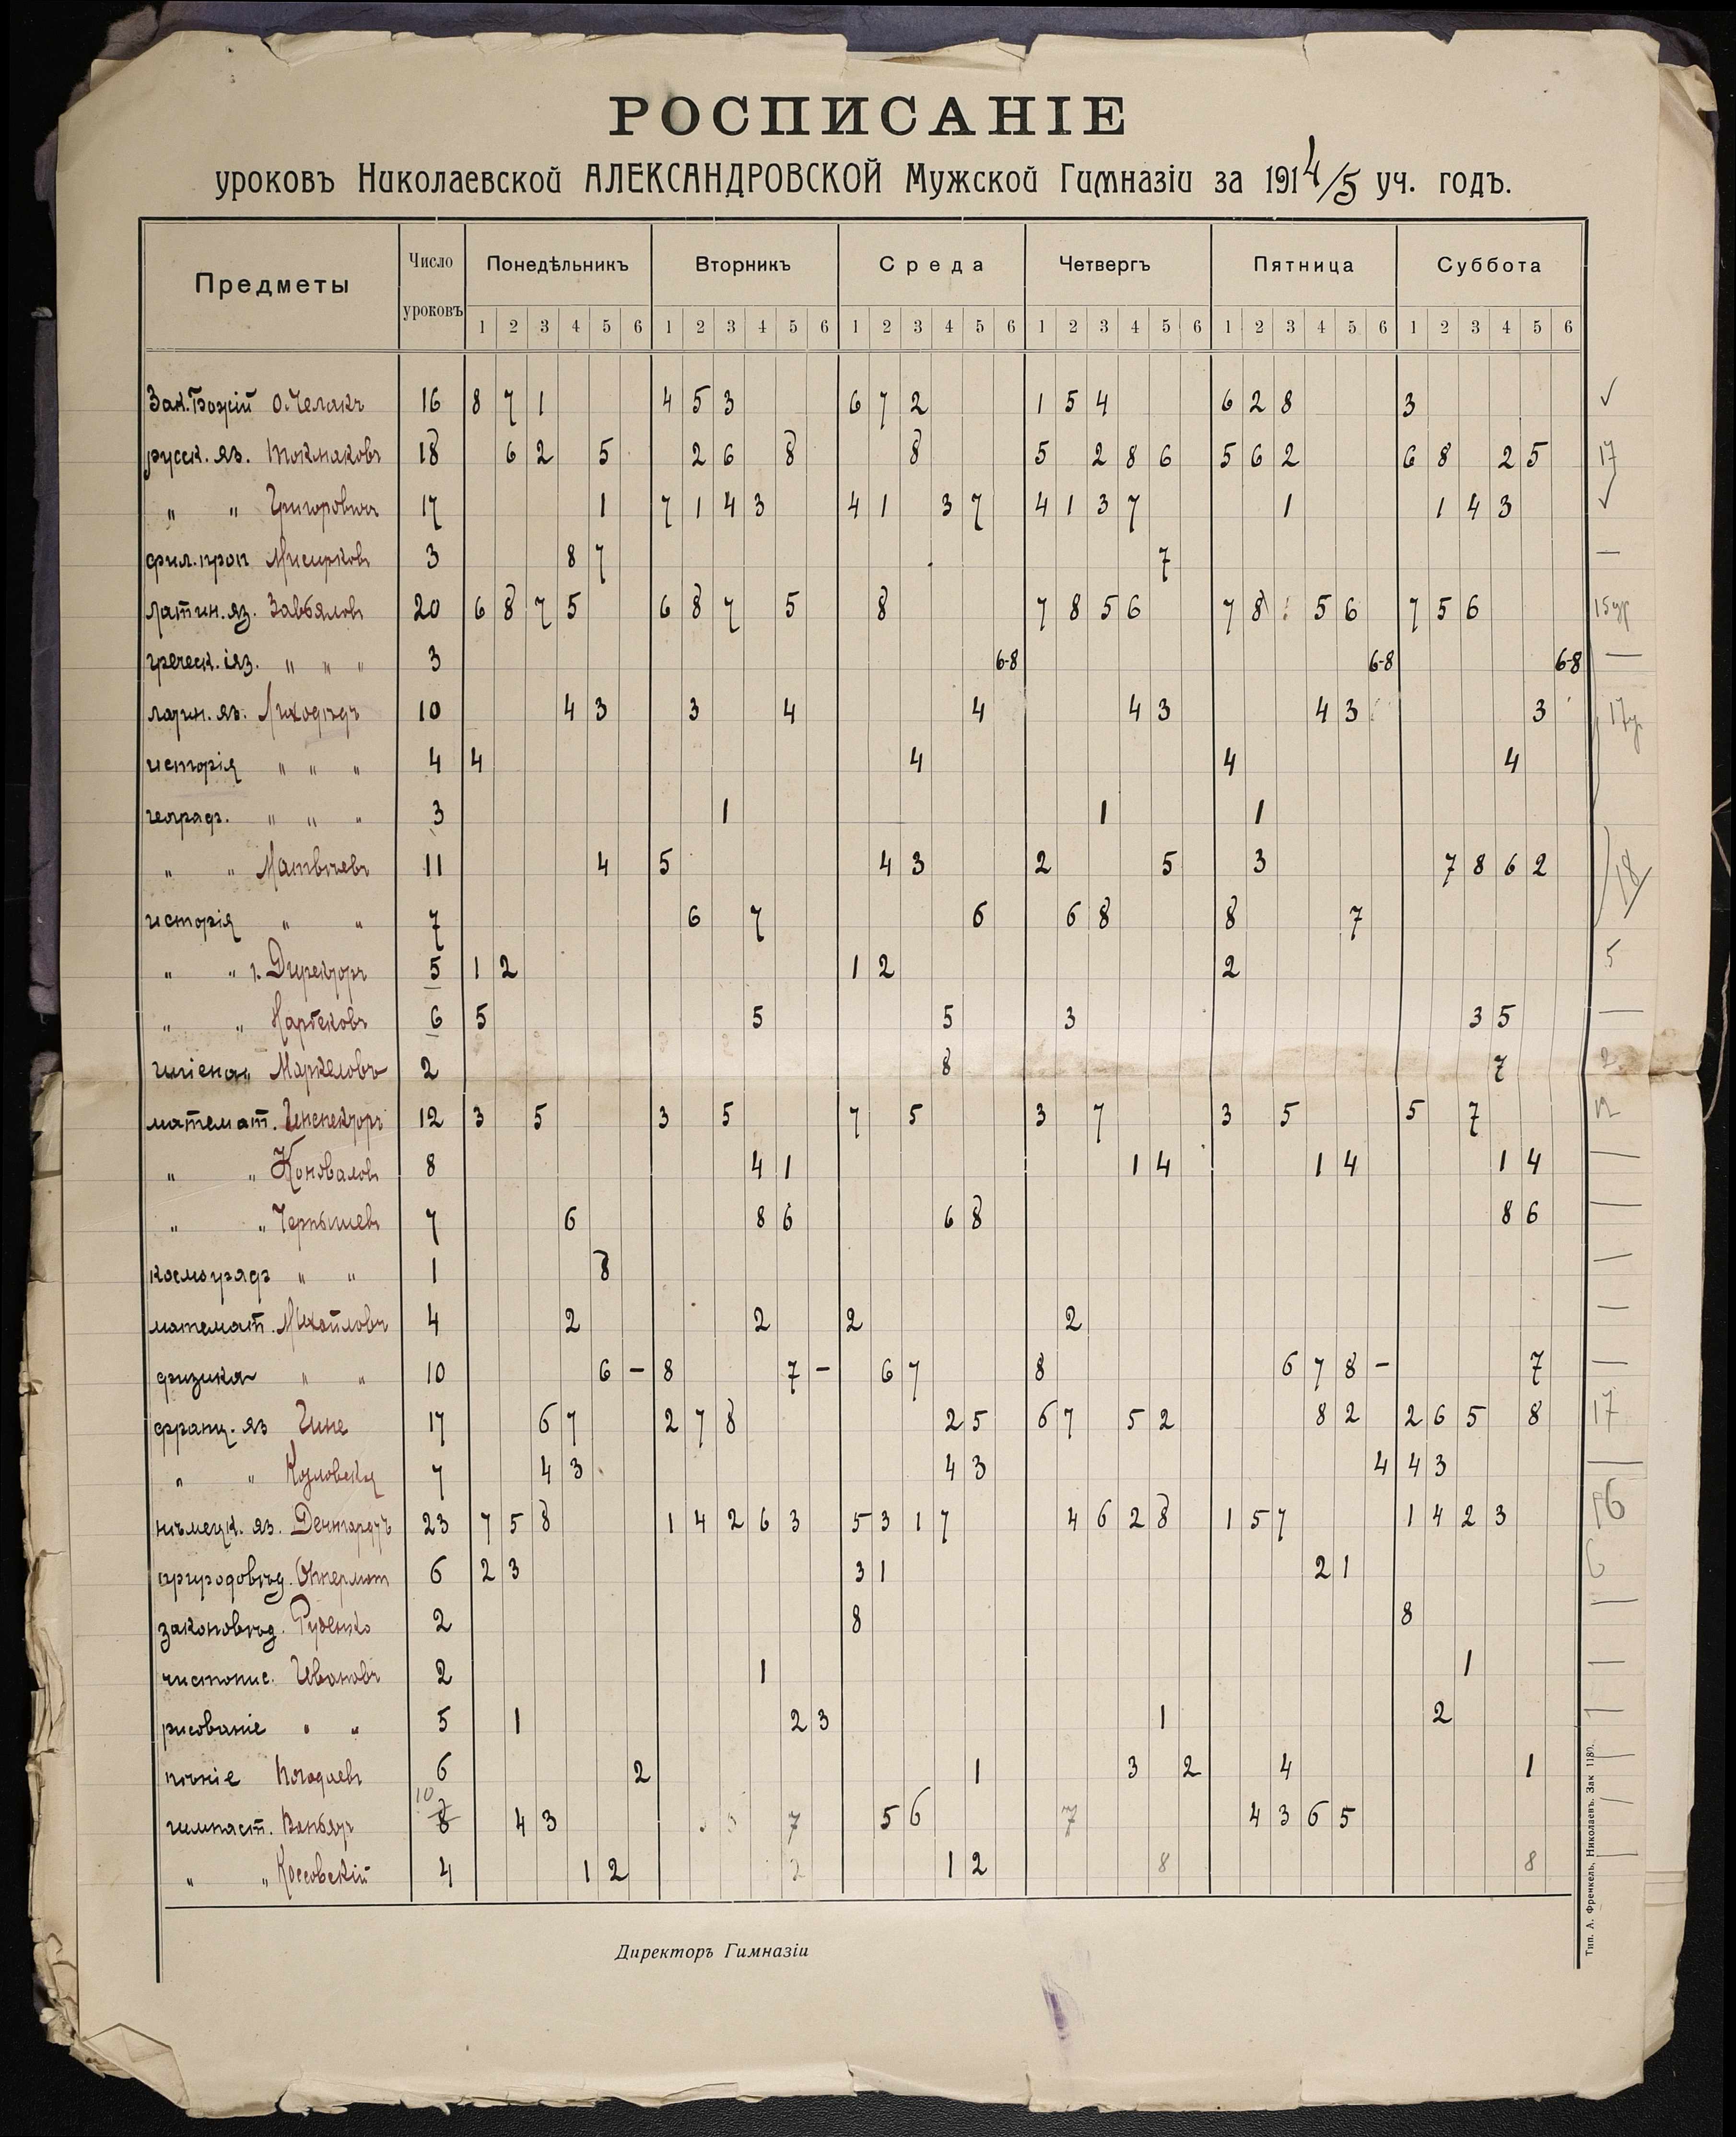 РОСПИСАНІЕ
уроковъ Николаевской АЛЕКСАНДРОВСКОЙ Мужской Гимназіи за 1914/5 уч. годъ.
Предметы Число уроковъ Понедѣльникъ Вторникъ Среда Четвергъ Пятница Суббота
1 2 3 4 5 6 1 2 3 4 5 6 1 2 3 4 5 6 1 2 3 4 5 6 1 2 3 4 5 6 1 2 3 4 5 6
Зак. Божій О. Челакъ 16 8 7 1 4 5 3 6 7 2 1 5 4 6 2 8 3 ✓
русск. яз. Токмаковъ 18 6 2 5 2 6 8 8 5 2 8 6 5 6 2 6 8 2 5 17
" " Григоровичъ 17 1 7 1 4 3 4 1 3 7 4 1 3 7 1 1 4 3 ✓
фил. проп Мисирковъ 3 8 7 7 —
латин. яз. Завьяловъ 20 6 8 7 5 6 8 7 5 8 7 8 5 6 7 8 5 6 7 5 6 15 ур
греческ. яз. " " " 3 6-8 6-8 6-8 —
латин. яз. Лиходѣдъ 10 4 3 3 4 4 4 3 4 3 3 17 у
исторія " " " 4 4 4 4 4
географ. " " " 3 1 1 1
" " Матвѣевъ 11 4 5 4 3 2 5 3 7 8 6 2 18
исторія " " 7 6 7 6 6 8 8 7
" " г. Директоръ 5 1 2 1 2 2 5
" " Карбековъ 6 5 5 5 3 3 5 —
гигіена " Маркеловъ 2 8 7 2
математ. Инспекторъ 12 3 5 3 5 7 5 3 7 3 5 5 7 12
" " Коновалов 8 4 1 1 4 1 4 1 4 —
" " Чернышевъ 7 6 8 6 6 8 8 6 —
космограф " " 1 8 —
математ. Михайловъ 4 2 2 2 2 —
физика " " 10 6 — 8 7 — 6 7 8 6 7 8 — 7 —
франц. яз Гине 17 6 7 2 7 8 2 5 6 7 5 2 8 2 2 6 5 8 17
" " Козловскі 7 4 3 4 3 4 4 3 —
нѣмецк. яз. 23 7 5 8 1 4 2 6 3 5 3 1 7 4 6 2 8 1 5 7 1 4 2 3 16
природовѣд. 6 2 3 3 1 2 1 6
законовѣд. Руденко 2 8 8 —
чистопис. Ивановъ 2 1 1 —
рисованіе " " 5 1 2 3 1 2 —
пѣніе Погодаевъ 6 2 1 3 2 4 1 —
10
гимнаст. 8 4 3 7 5 6 7 4 3 6 5 —
" " Коссовскій 4 1 2 2 1 2 8 8 —
Директоръ Гимназіи
Тип. А. Френкель, Николаевъ. Зак 1180.